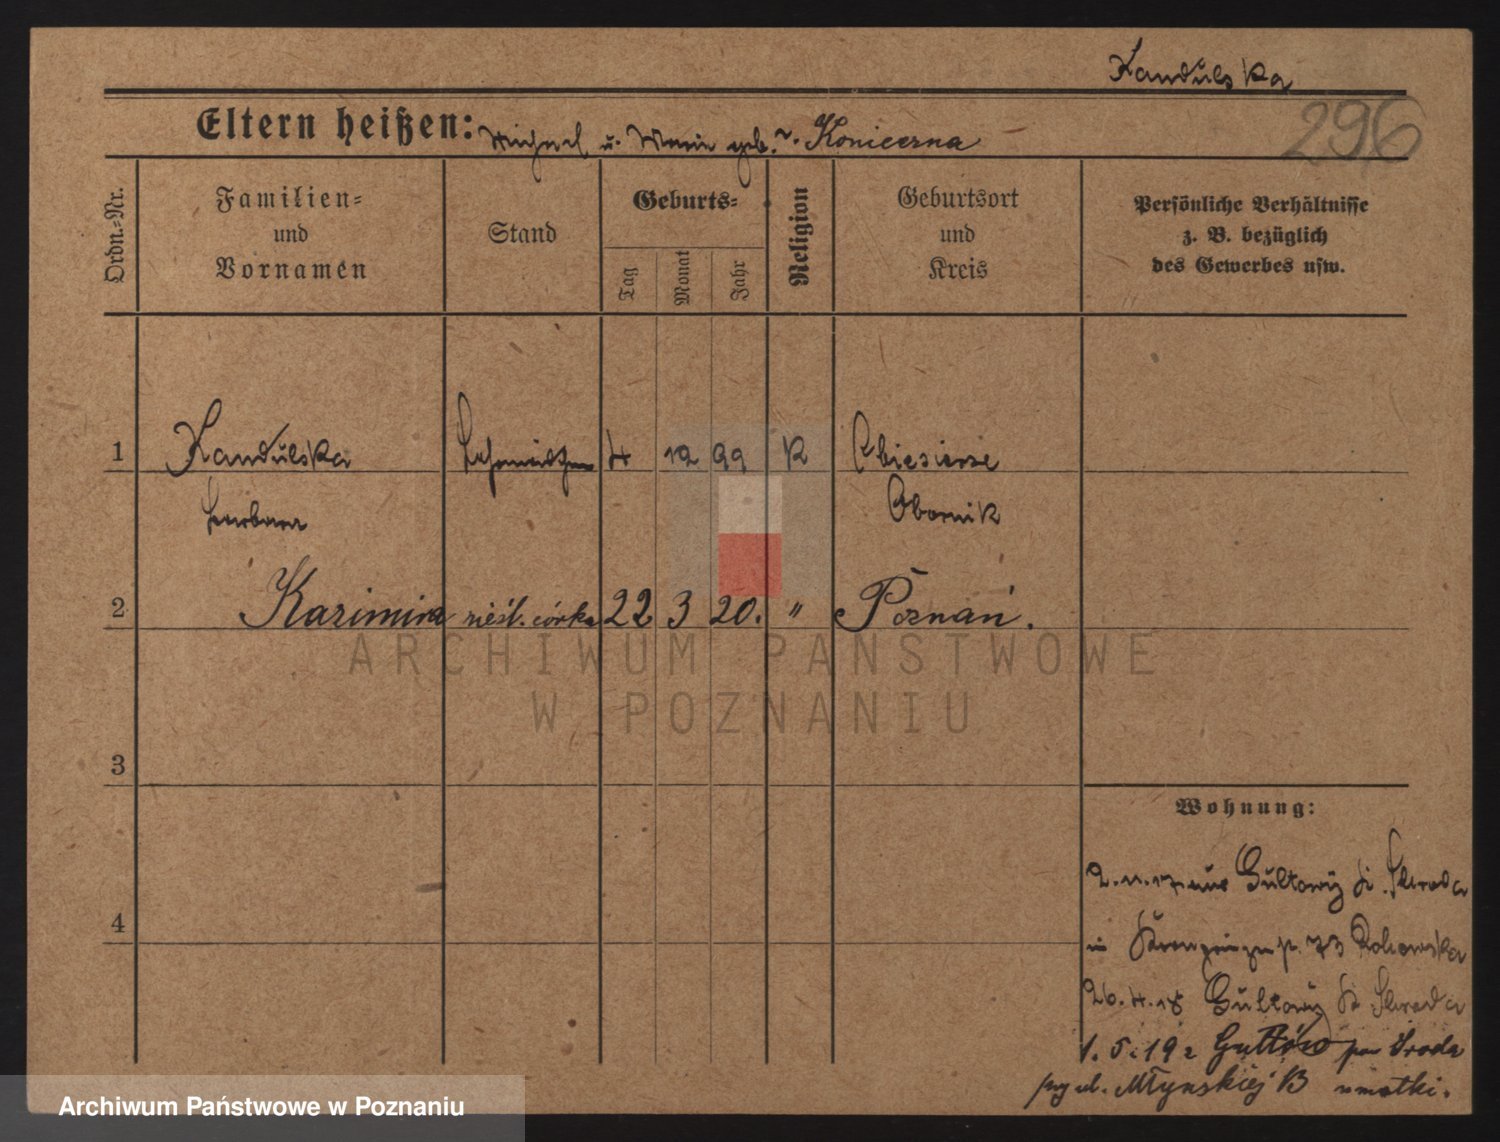 Kandulska
296
Eltern heißen: Michael u. Marie geb. Konieczna
Ordn.-Nr.
Familien-
und
Vornamen
Stand
Geburts-
Tag
Monat
Jahr
Religion
Geburtsort
und
Kreis
Persönliche Verhältnisse
z. B. bezüglich
des Gewerbes usw.
1 Kandulska 4 12 99 K
Barbara Obornik
2 Kazimira nieśl. córka 22 3 20. " Poznań.
3
Wohnung:
aus Gultowy Schroda
4
in 73
26.4.18 Gultowy Schroda
1. 5. 19 z Gułtów Środa
przy ul. Młynskiej 13 u matki.
ARCHIWUM PAŃSTWOWE
W POZNANIU
Archiwum Państwowe w Poznaniu